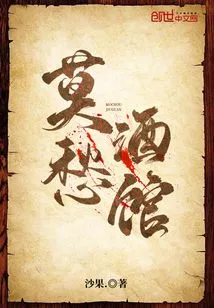 创世中文网
莫愁
MOCHOU
JIUGUAN
酒館
沙果.◎著